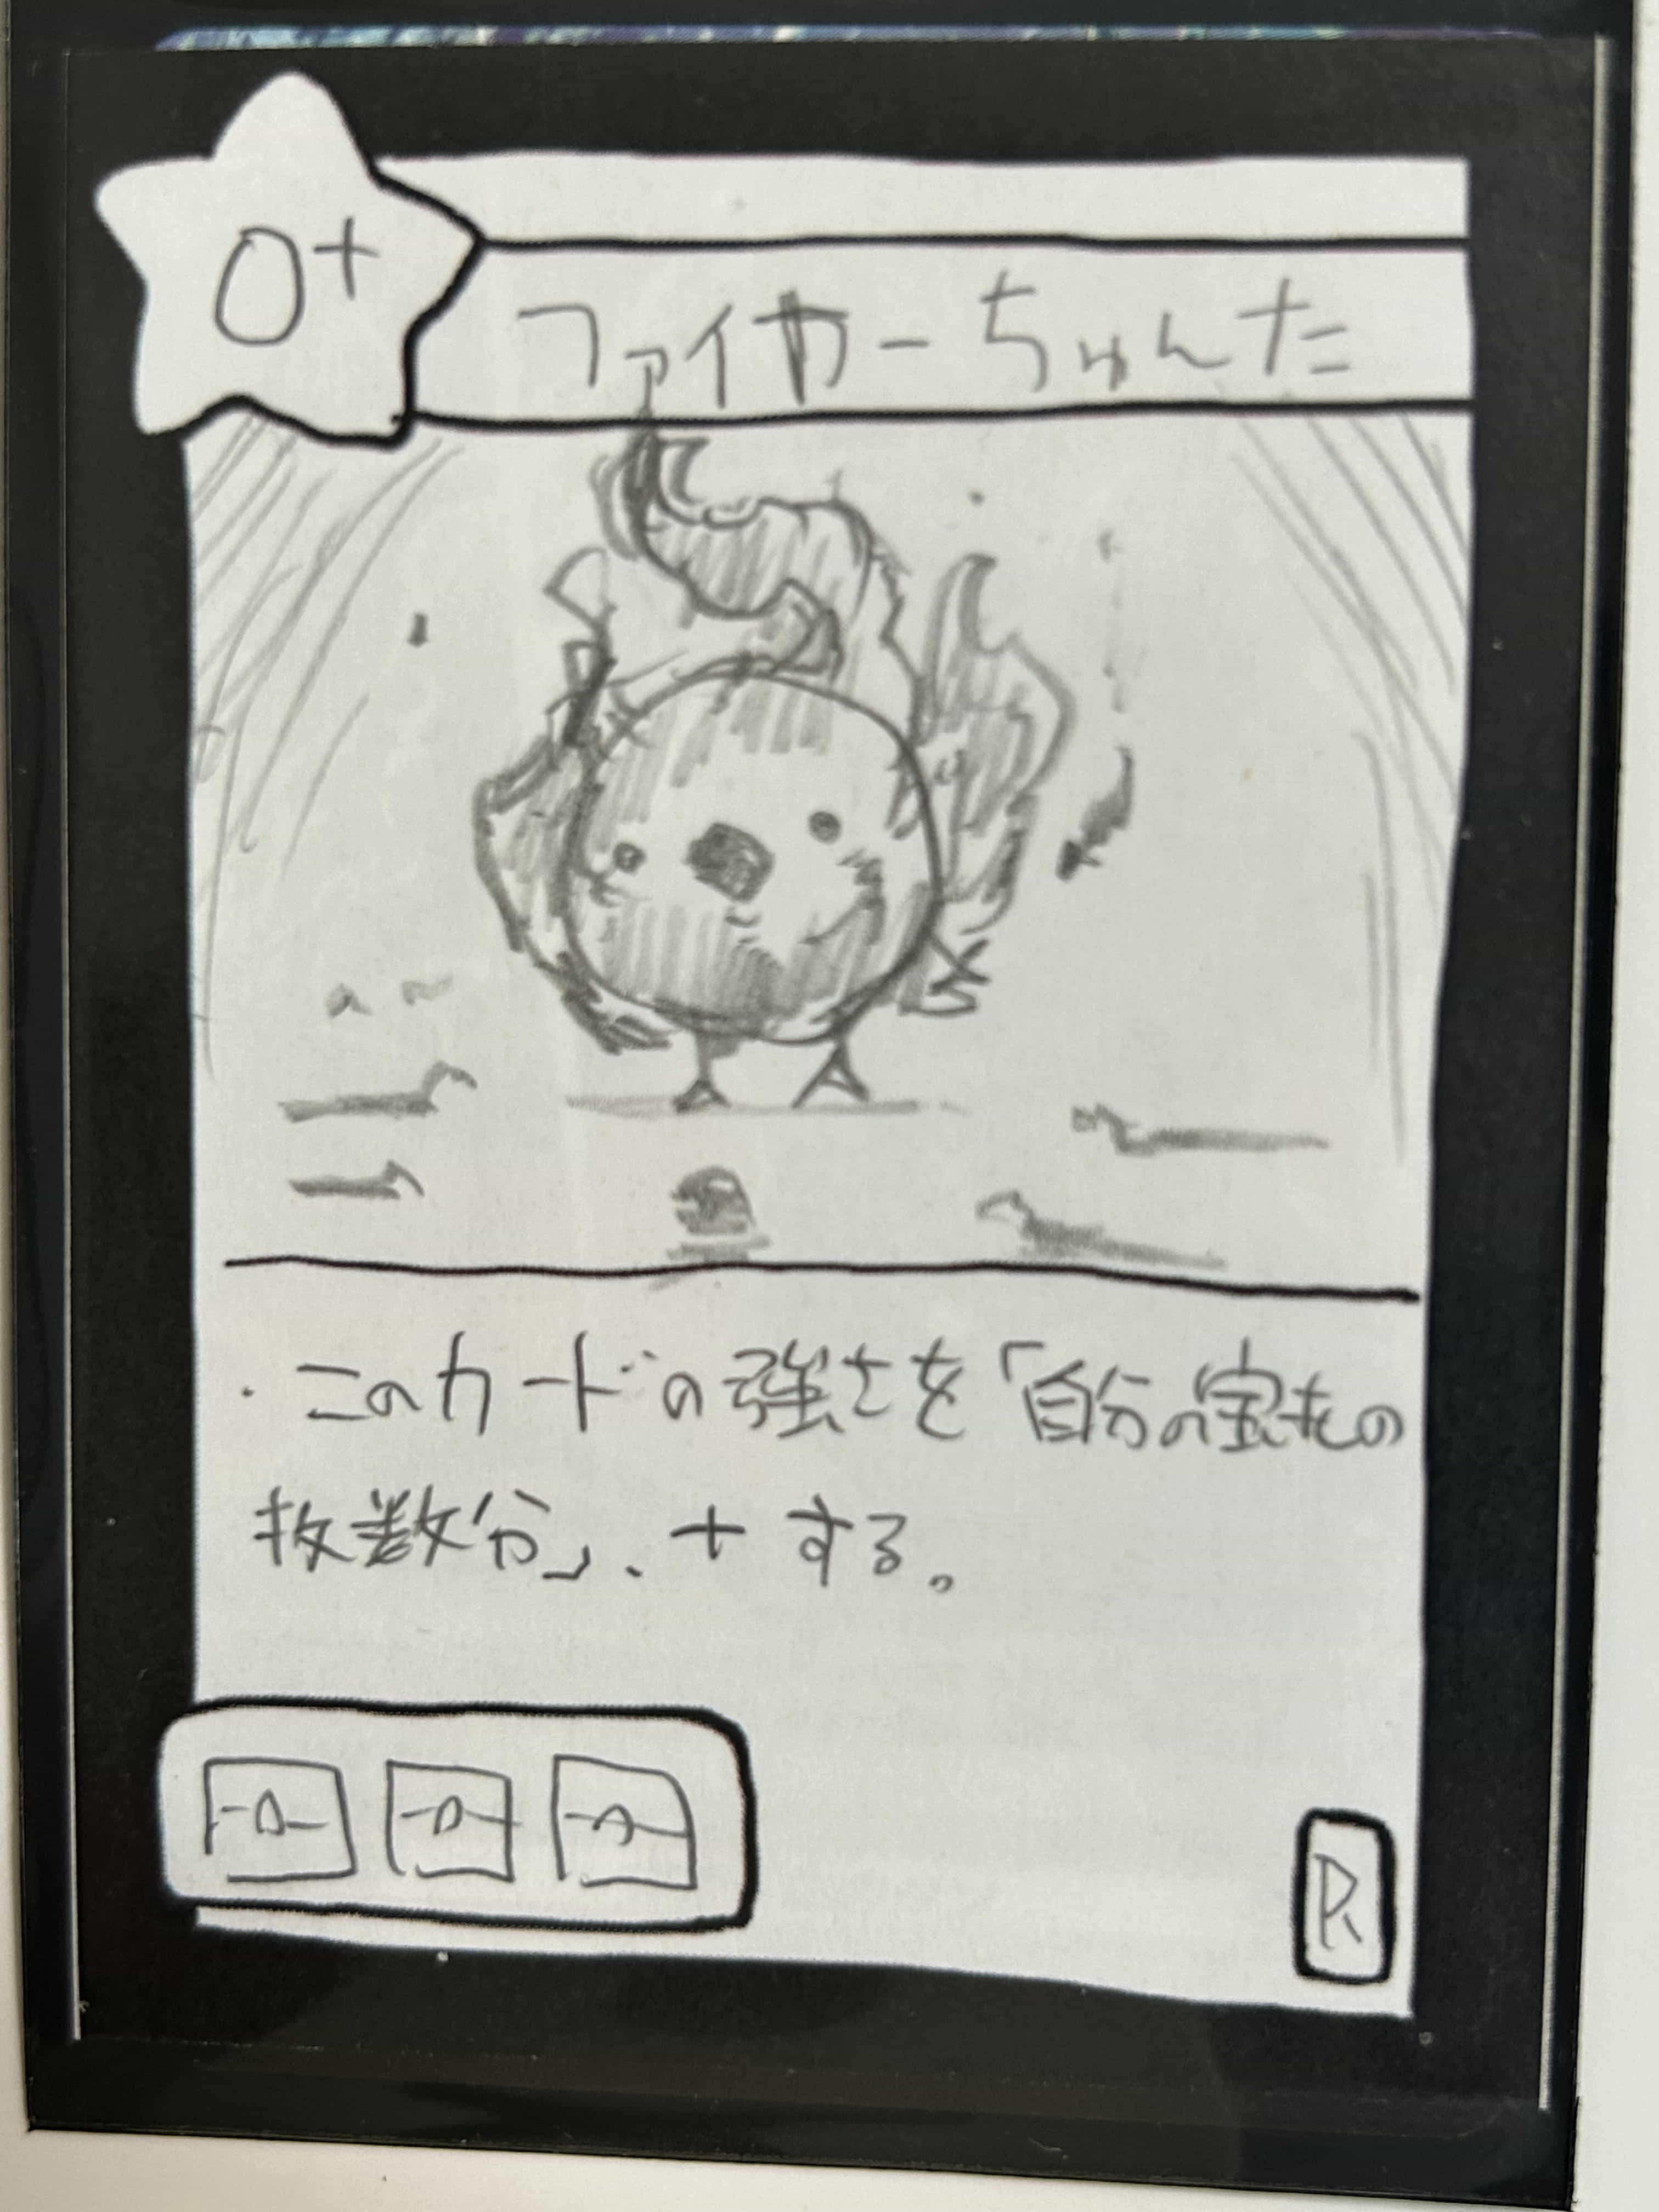 0+
ファイヤーちゅんた
・このカードの強さを「自分の宝もの
枚数分」、+する。
R